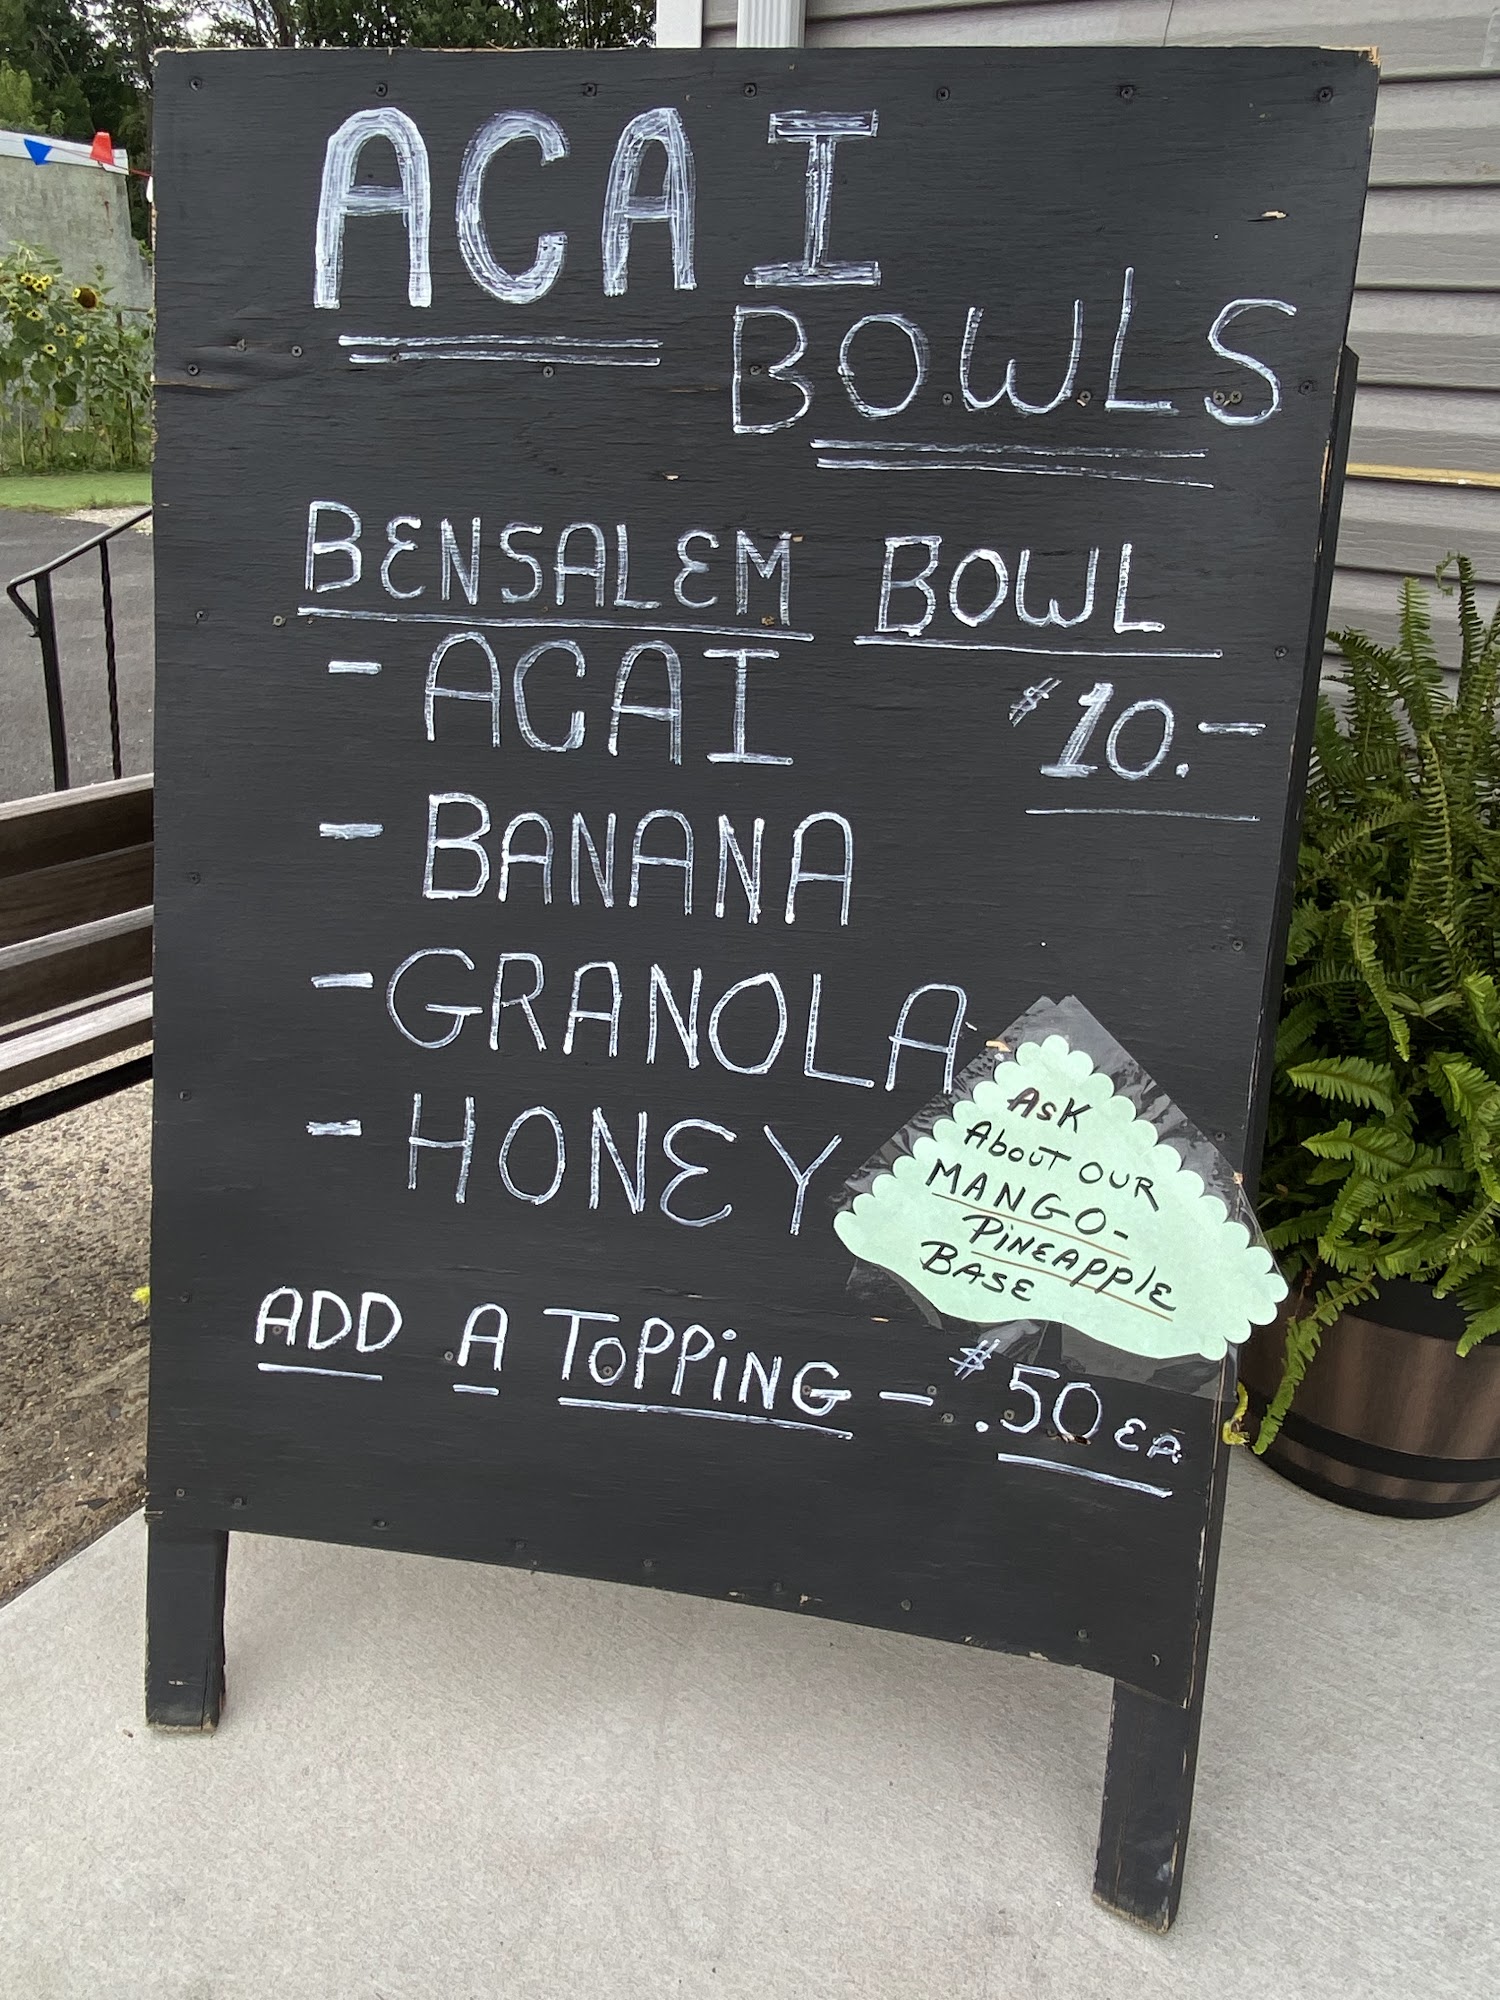 ACAI
BOWLS
BENSALEM BOWL
- ACAI
$10.-
- BANANA
- GRANOLA
- HONEY
ASK
ABOUT OUR
MANGO-
PINEAPPLE
BASE
ADD A TOPPING - $.50 EA.